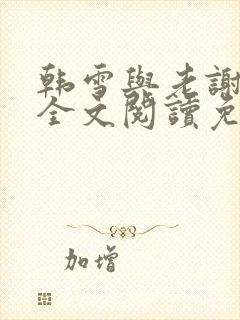 韩雪與老謝
全文閱讀免
加增